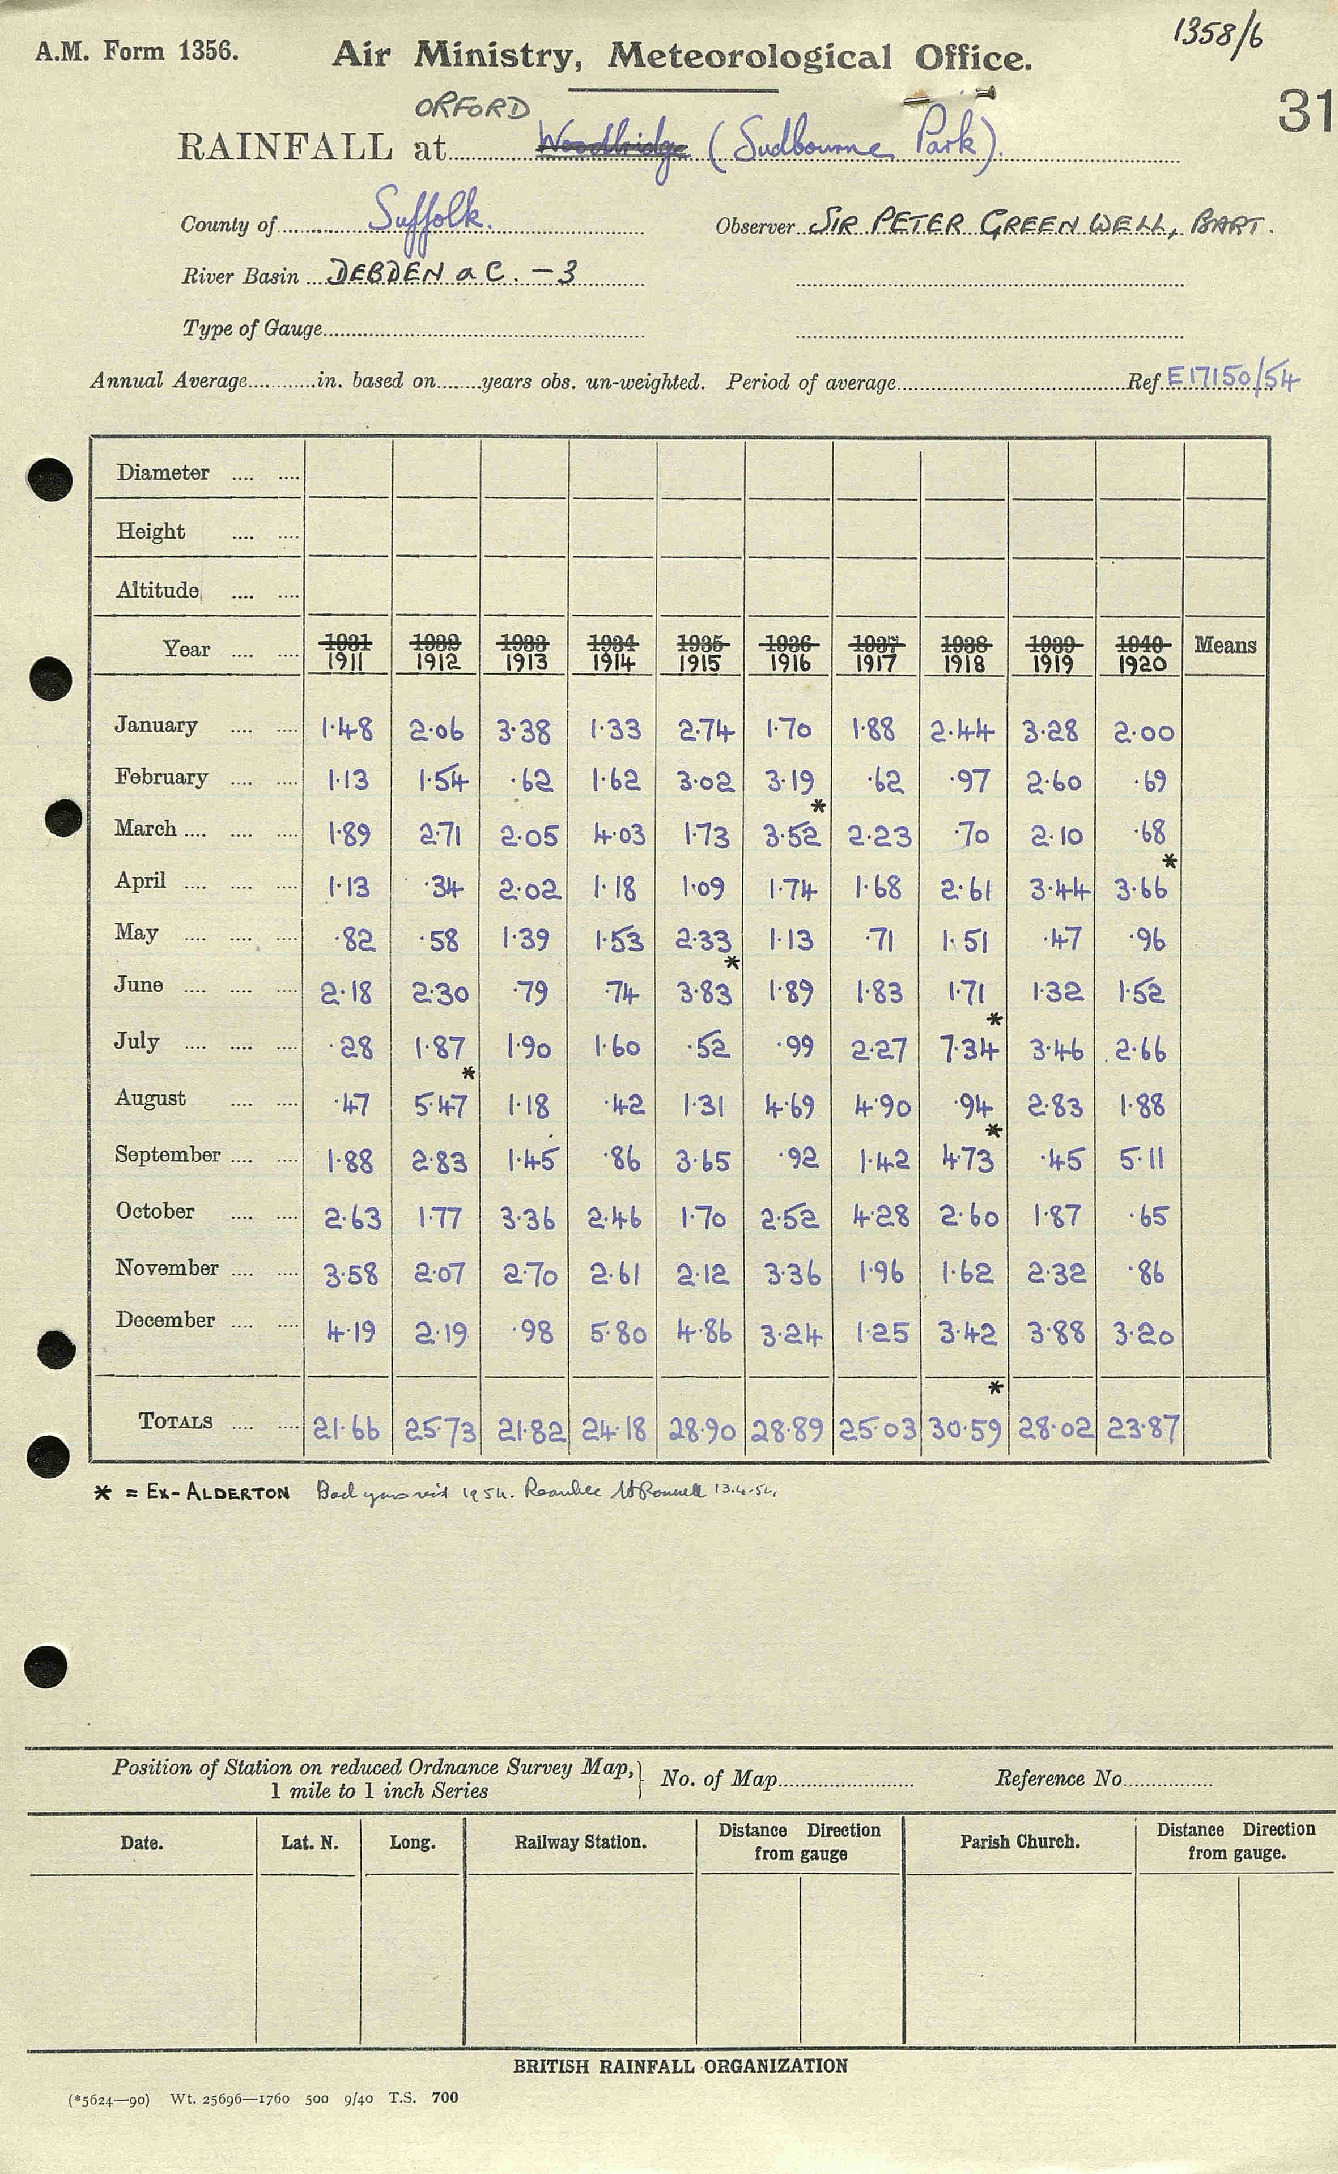 1358/6
A.M. Form 1356. Air Ministry, Meteorological Office.
31
ORFORD
RAINFALL at Woodbridge (Sudbourne Park).
County of Suffolk. Observer SIR PETER GREENWELL, BART.
River Basin DEBDEN &C. - 3
Type of Gauge
Annual Average in. based on years obs. un-weighted. Period of average Ref. E17150/54
Diameter .... ....
Height .... ....
Altitude .... ....
Year .... .... 1931 1932 1933 1934 1935 1936 1937 1938 1939 1940 Means
1911 1912 1913 1914 1915 1916 1917 1918 1919 1920
January .... .... 1.48 2.06 3.38 1.33 2.74 1.70 1.88 2.44 3.28 2.00
February .... .... 1.13 1.54 .62 1.62 3.02 3.19 .62 .97 2.60 .69
March .... .... .... 1.89 2.71 2.05 4.03 1.73 *3.52 2.23 .70 2.10 .68
April .... .... .... 1.13 .34 2.02 1.18 1.09 1.74 1.68 2.61 3.44 *3.66
May .... .... .... .82 .58 1.39 1.53 2.33 1.13 .71 1.51 .47 .96
June .... .... .... 2.18 2.30 .79 .74 *3.83 1.89 1.83 1.71 1.32 1.52
July .... .... .... .28 1.87 1.90 1.60 .52 .99 2.27 *7.34 3.46 2.66
August .... .... .47 *5.47 1.18 .42 1.31 4.69 4.90 .94 2.83 1.88
September .... .... 1.88 2.83 1.45 .86 3.65 .92 1.42 *4.73 .45 5.11
October .... .... 2.63 1.77 3.36 2.46 1.70 2.52 4.28 2.60 1.87 .65
November .... .... 3.58 2.07 2.70 2.61 2.12 3.36 1.96 1.62 2.32 .86
December .... .... 4.19 2.19 .98 5.80 4.86 3.24 1.25 3.42 3.88 3.20
TOTALS .... .... 21.66 25.73 21.82 24.18 28.90 28.89 25.03 *30.59 28.02 23.87
* = EX-ALDERTON 1954. 13.4.54.
Position of Station on reduced Ordnance Survey Map, } No. of Map Reference No.
1 mile to 1 inch Series
Date. Lat. N. Long. Railway Station. Distance Direction from gauge Parish Church. Distance Direction from gauge.
BRITISH RAINFALL ORGANIZATION
(*5624—90) Wt. 25696—1760 500 9/40 T.S. 700